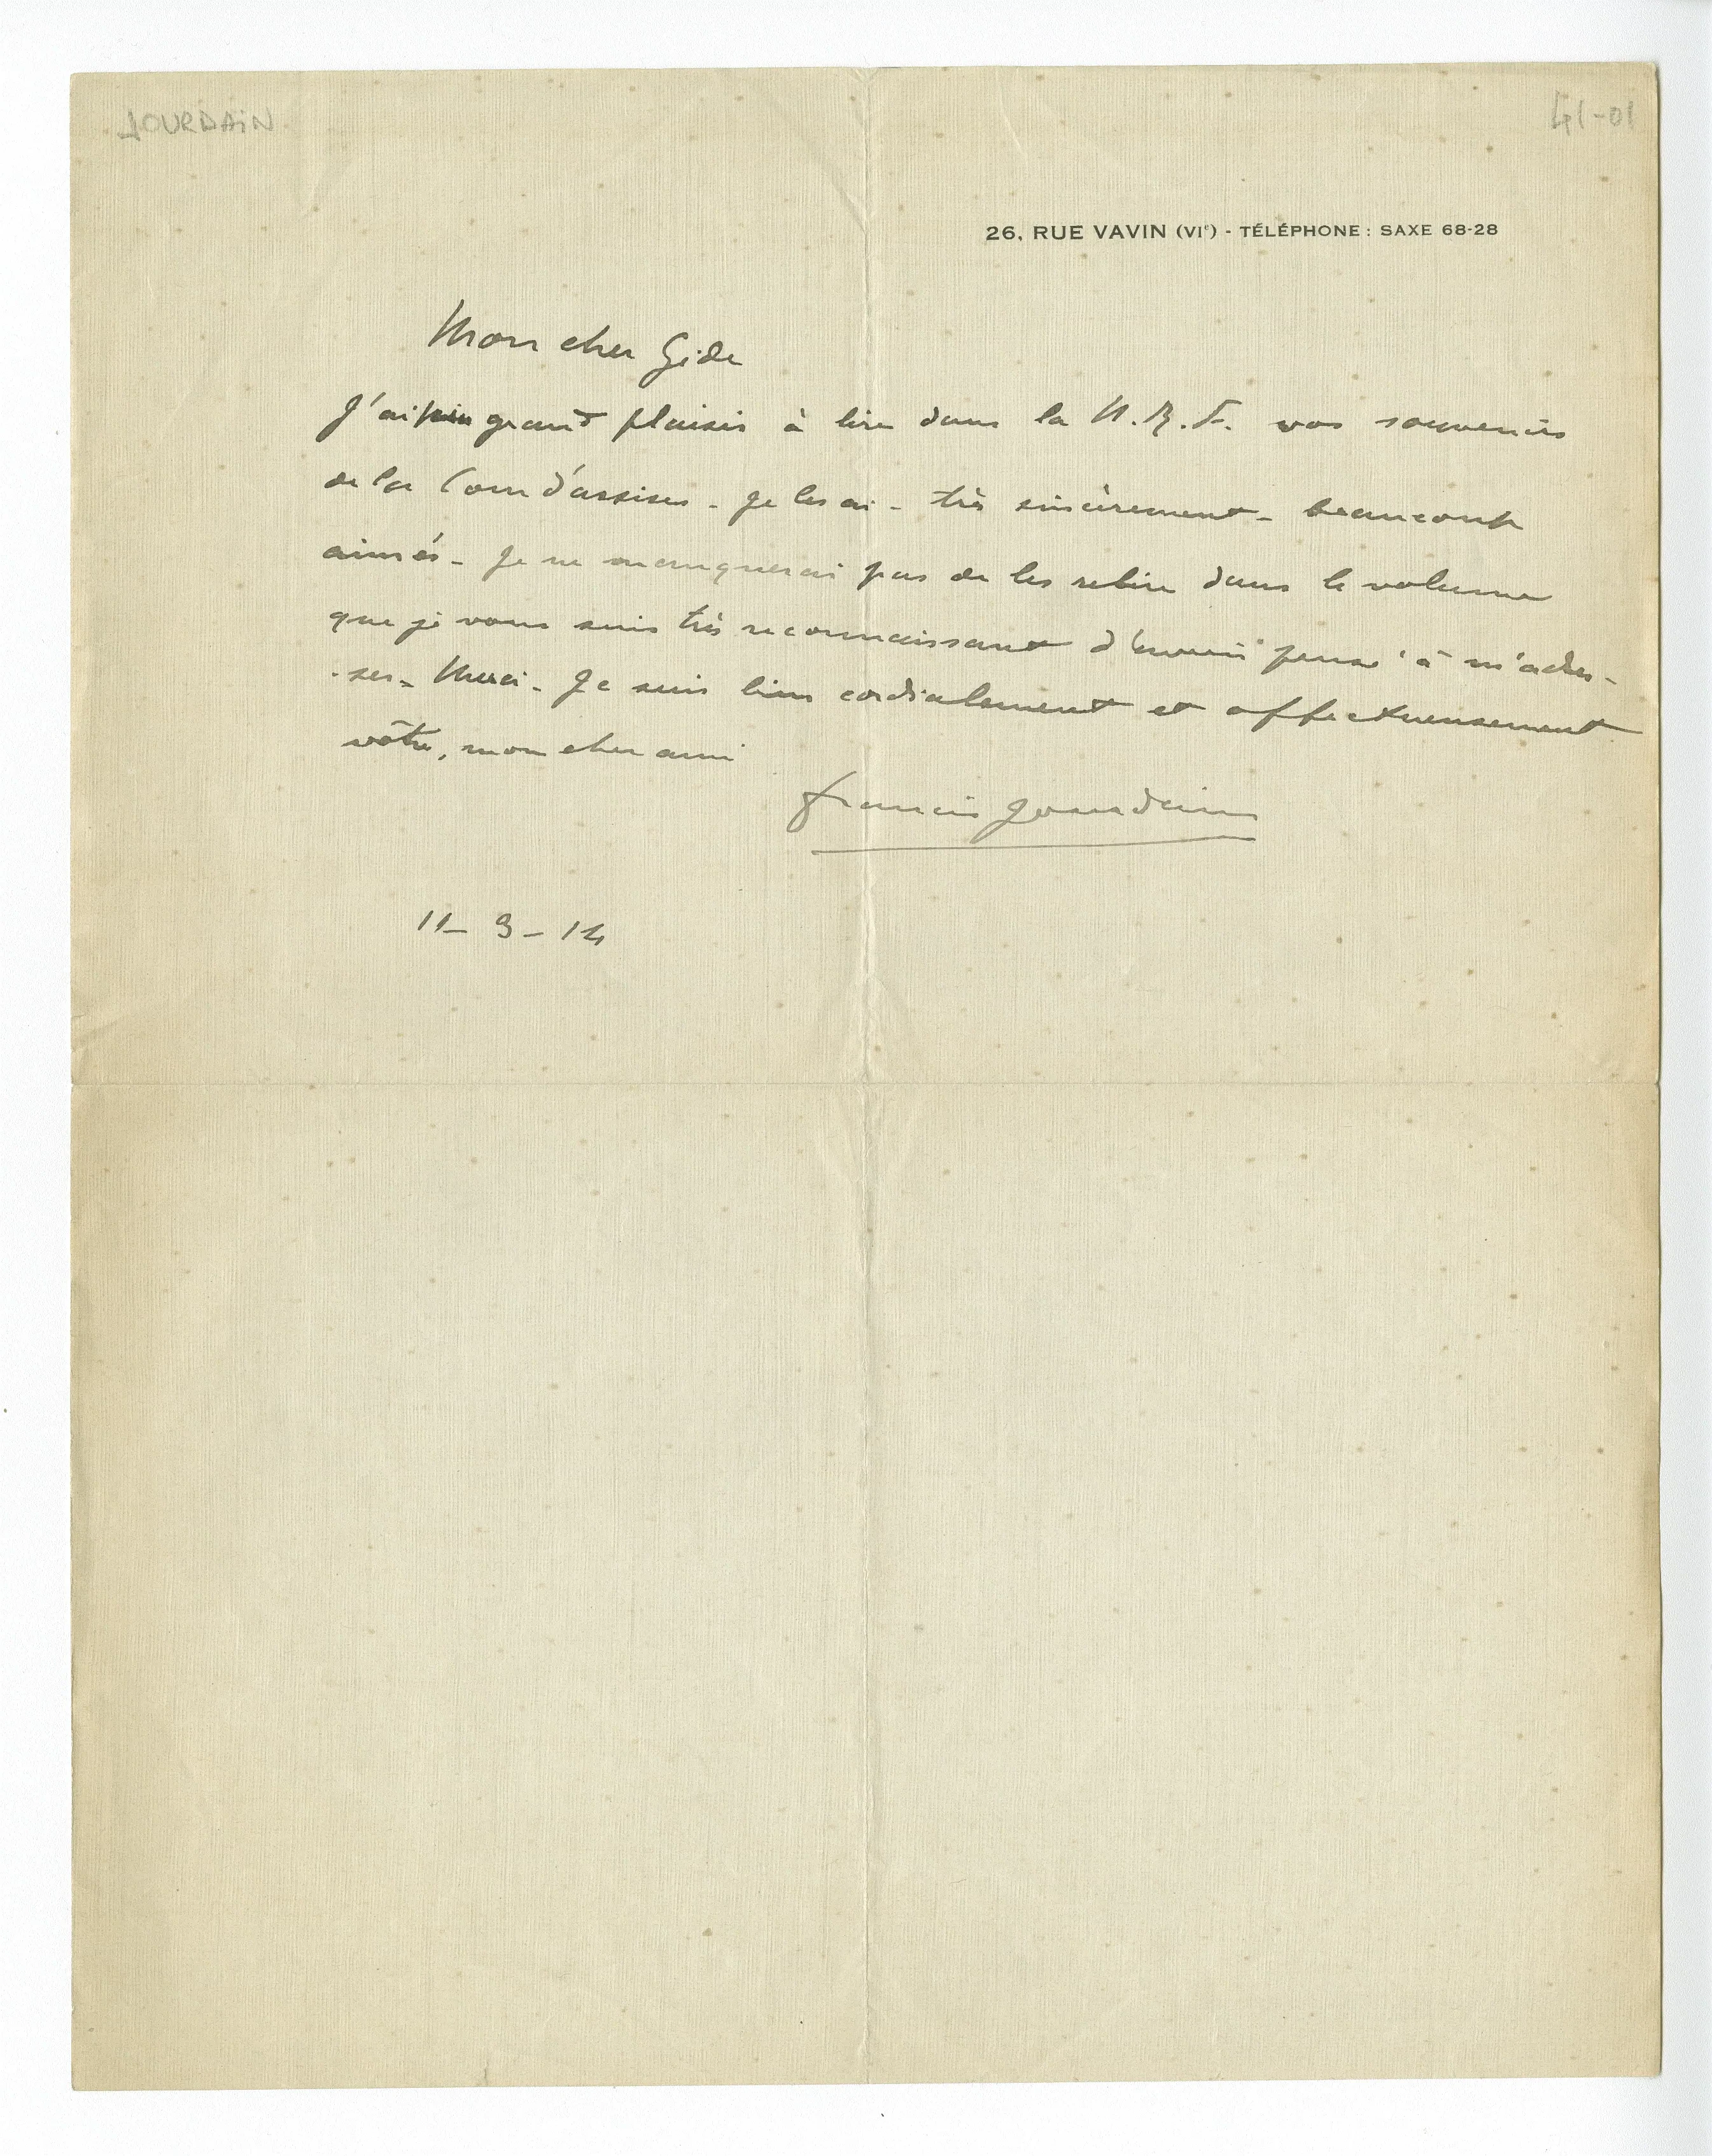 JOURDAIN
41-01
26, RUE VAVIN (VIe) - TÉLÉPHONE : SAXE 68-28
Mon cher Gide
J'ai pris grand plaisir à lire dans la N.R.F. vos souvenirs
de la Cour d'assises - Je les ai - très sincèrement - beaucoup
aimés - Je ne manquerai pas de les relire dans le volume
que je vous suis très reconnaissant d'avoir pensé à m'adres-
-ser - Merci - Je suis bien cordialement et affectueusement
vôtre, mon cher ami
Francis Jourdain
11 - 3 - 14